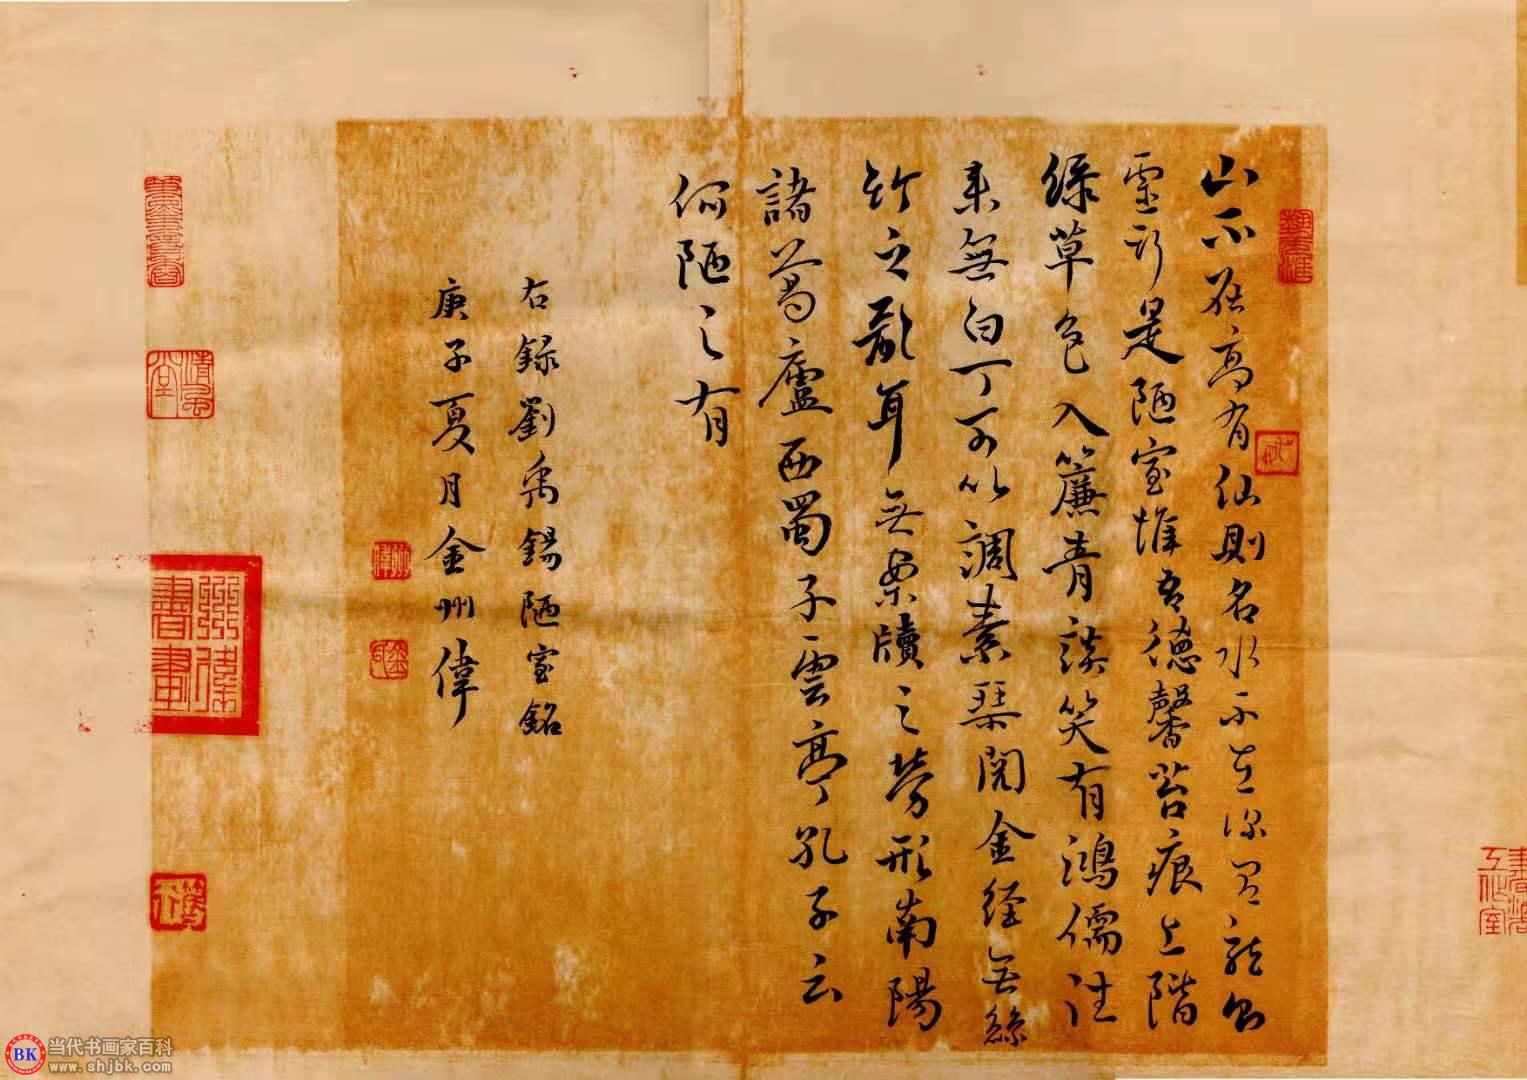 山不在高有仙則名水不在深有龍則
靈斯是陋室惟吾德馨苔痕上階
綠草色入簾青談笑有鴻儒往
来無白丁可以調素琴閱金經無絲
竹之亂耳無案牘之勞形南陽
諸葛廬西蜀子雲亭孔子云
何陋之有
右錄劉禹錫陋室銘
庚子夏月金州偉
BK
当代书画家百科
www.shjbk.com